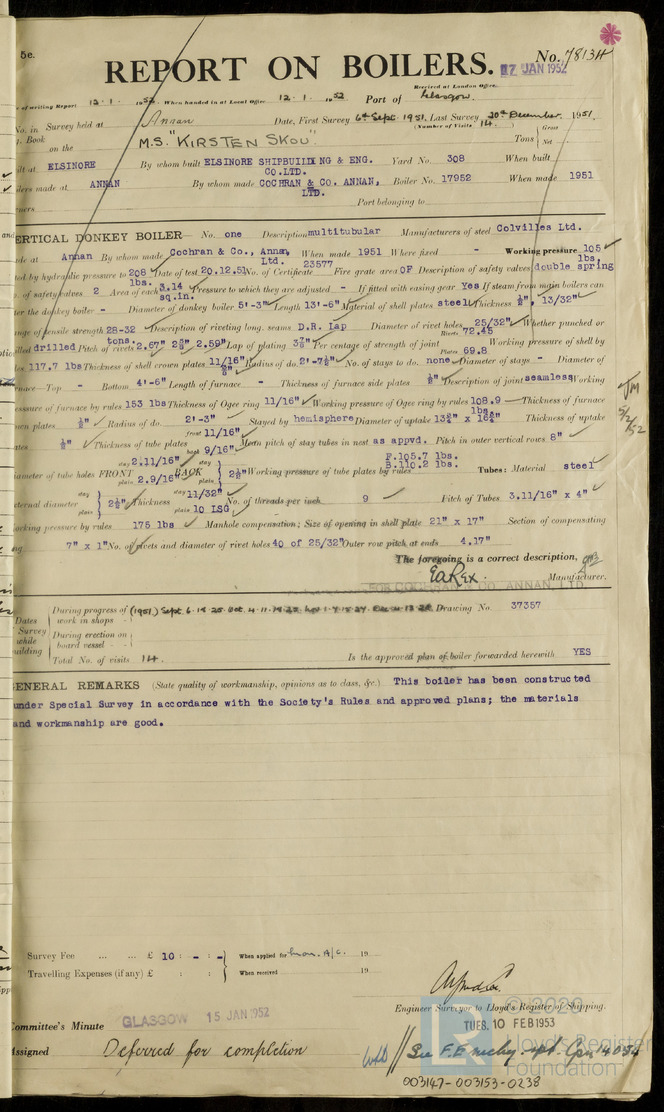 5e.
REPORT ON BOILERS. No. 78134
Received at London Office
17 JAN 1952
of writing Report 12.1.1952 When handed in at Local Office 12.1.1952 Port of Glasgow.
No. in Survey held at Annan Date, First Survey 6th Sept 1951 Last Survey 20th December, 1951
g. Book (Number of Visits 14.)
on the M.S. "KIRSTEN SKOU" Tons { Gross Net
ilt at ELSINORE By whom built ELSINORE SHIPBUILDING & ENG. CO. LTD. Yard No. 308 When built
ilers made at ANNAN By whom made COCHRAN & CO. ANNAN, LTD. Boiler No. 17952 When made 1951
ners Port belonging to
ERTICAL DONKEY BOILER No. one Description multitubular Manufacturers of steel Colvilles Ltd.
de at Annan By whom made Cochran & Co., Annan, Ltd. When made 1951 Where fixed - Working pressure 105 lbs.
ted by hydraulic pressure to 208 lbs. Date of test 20.12.51 No. of Certificate 23577 Fire grate area OF Description of safety valves double spring
. of safety valves 2 Area of each 3.14 sq.in. Pressure to which they are adjusted - If fitted with easing gear Yes If steam from main boilers can
er the donkey boiler - Diameter of donkey boiler 5'-3" Length 13'-6" Material of shell plates steel Thickness ½", 13/32"
nge of tensile strength 28-32 tons. Description of riveting long. seams D.R. Lap Diameter of rivet holes 25/32" Whether punched or
lled drilled Pitch of rivets 2.67" 2⅝" 2.59" Lap of plating 3⅞" Per centage of strength of joint Rivets 72.45 Plates 69.8 Working pressure of shell by
les 117.7 lbs Thickness of shell crown plates 11/16" Radius of do. 2'-7½" No. of stays to do. none Diameter of stays - Diameter of
rnace—Top - Bottom 4'-6" Length of furnace - Thickness of furnace side plates ½" Description of joint seamless Working
essure of furnace by rules 153 lbs Thickness of Ogee ring 11/16" Working pressure of Ogee ring by rules 108.9 lbs Thickness of furnace
own plates ½" Radius of do. 2'-3" Stayed by hemisphere Diameter of uptake 13¾" x 16¾" Thickness of uptake
ates ½" Thickness of tube plates front 11/16" back 9/16" Mean pitch of stay tubes in nest as appvd. Pitch in outer vertical rows 8"
iameter of tube holes FRONT stay 2.11/16" plain 2.9/16" BACK stay plain 2½" Working pressure of tube plates by rules F.105.7 lbs. B.110.2 lbs. Tubes: Material steel
ternal diameter stay plain 2½" Thickness stay 11/32" plain 10 LSG No. of threads per inch 9 Pitch of Tubes 3.11/16" x 4"
orking pressure by rules 175 lbs Manhole compensation: Size of opening in shell plate 21" x 17" Section of compensating
ng 7" x 1" No. of rivets and diameter of rivet holes 40 of 25/32" Outer row pitch at ends 4.17"
The foregoing is a correct description,
Manufacturer.
FOR COCHRAN & CO. ANNAN, LTD.
Dates Survey while uilding
During progress of work in shops - (1951) Sept 6. 19. 25. Oct. 4. 11. 19. 25. Nov 1. 7. 15. 29. Dec 4. 13. 20. Drawing No. 37357
During erection on board vessel -
Total No. of visits 14. Is the approved plan of boiler forwarded herewith YES
ENERAL REMARKS (State quality of workmanship, opinions as to class, &c.) This boiler has been constructed
under Special Survey in accordance with the Society's Rules and approved plans; the materials
and workmanship are good.
Survey Fee ... ... £ 10 : - : - When applied for 19
Travelling Expenses (if any) £ : : When received 19
Engineer Surveyor to Lloyd's Register of Shipping.
© 2020
Lloyd's Register
Foundation
TUES. 10 FEB 1953
Committee's Minute GLASGOW 15 JAN 1952
Assigned Deferred for completion
003147-003153-0238